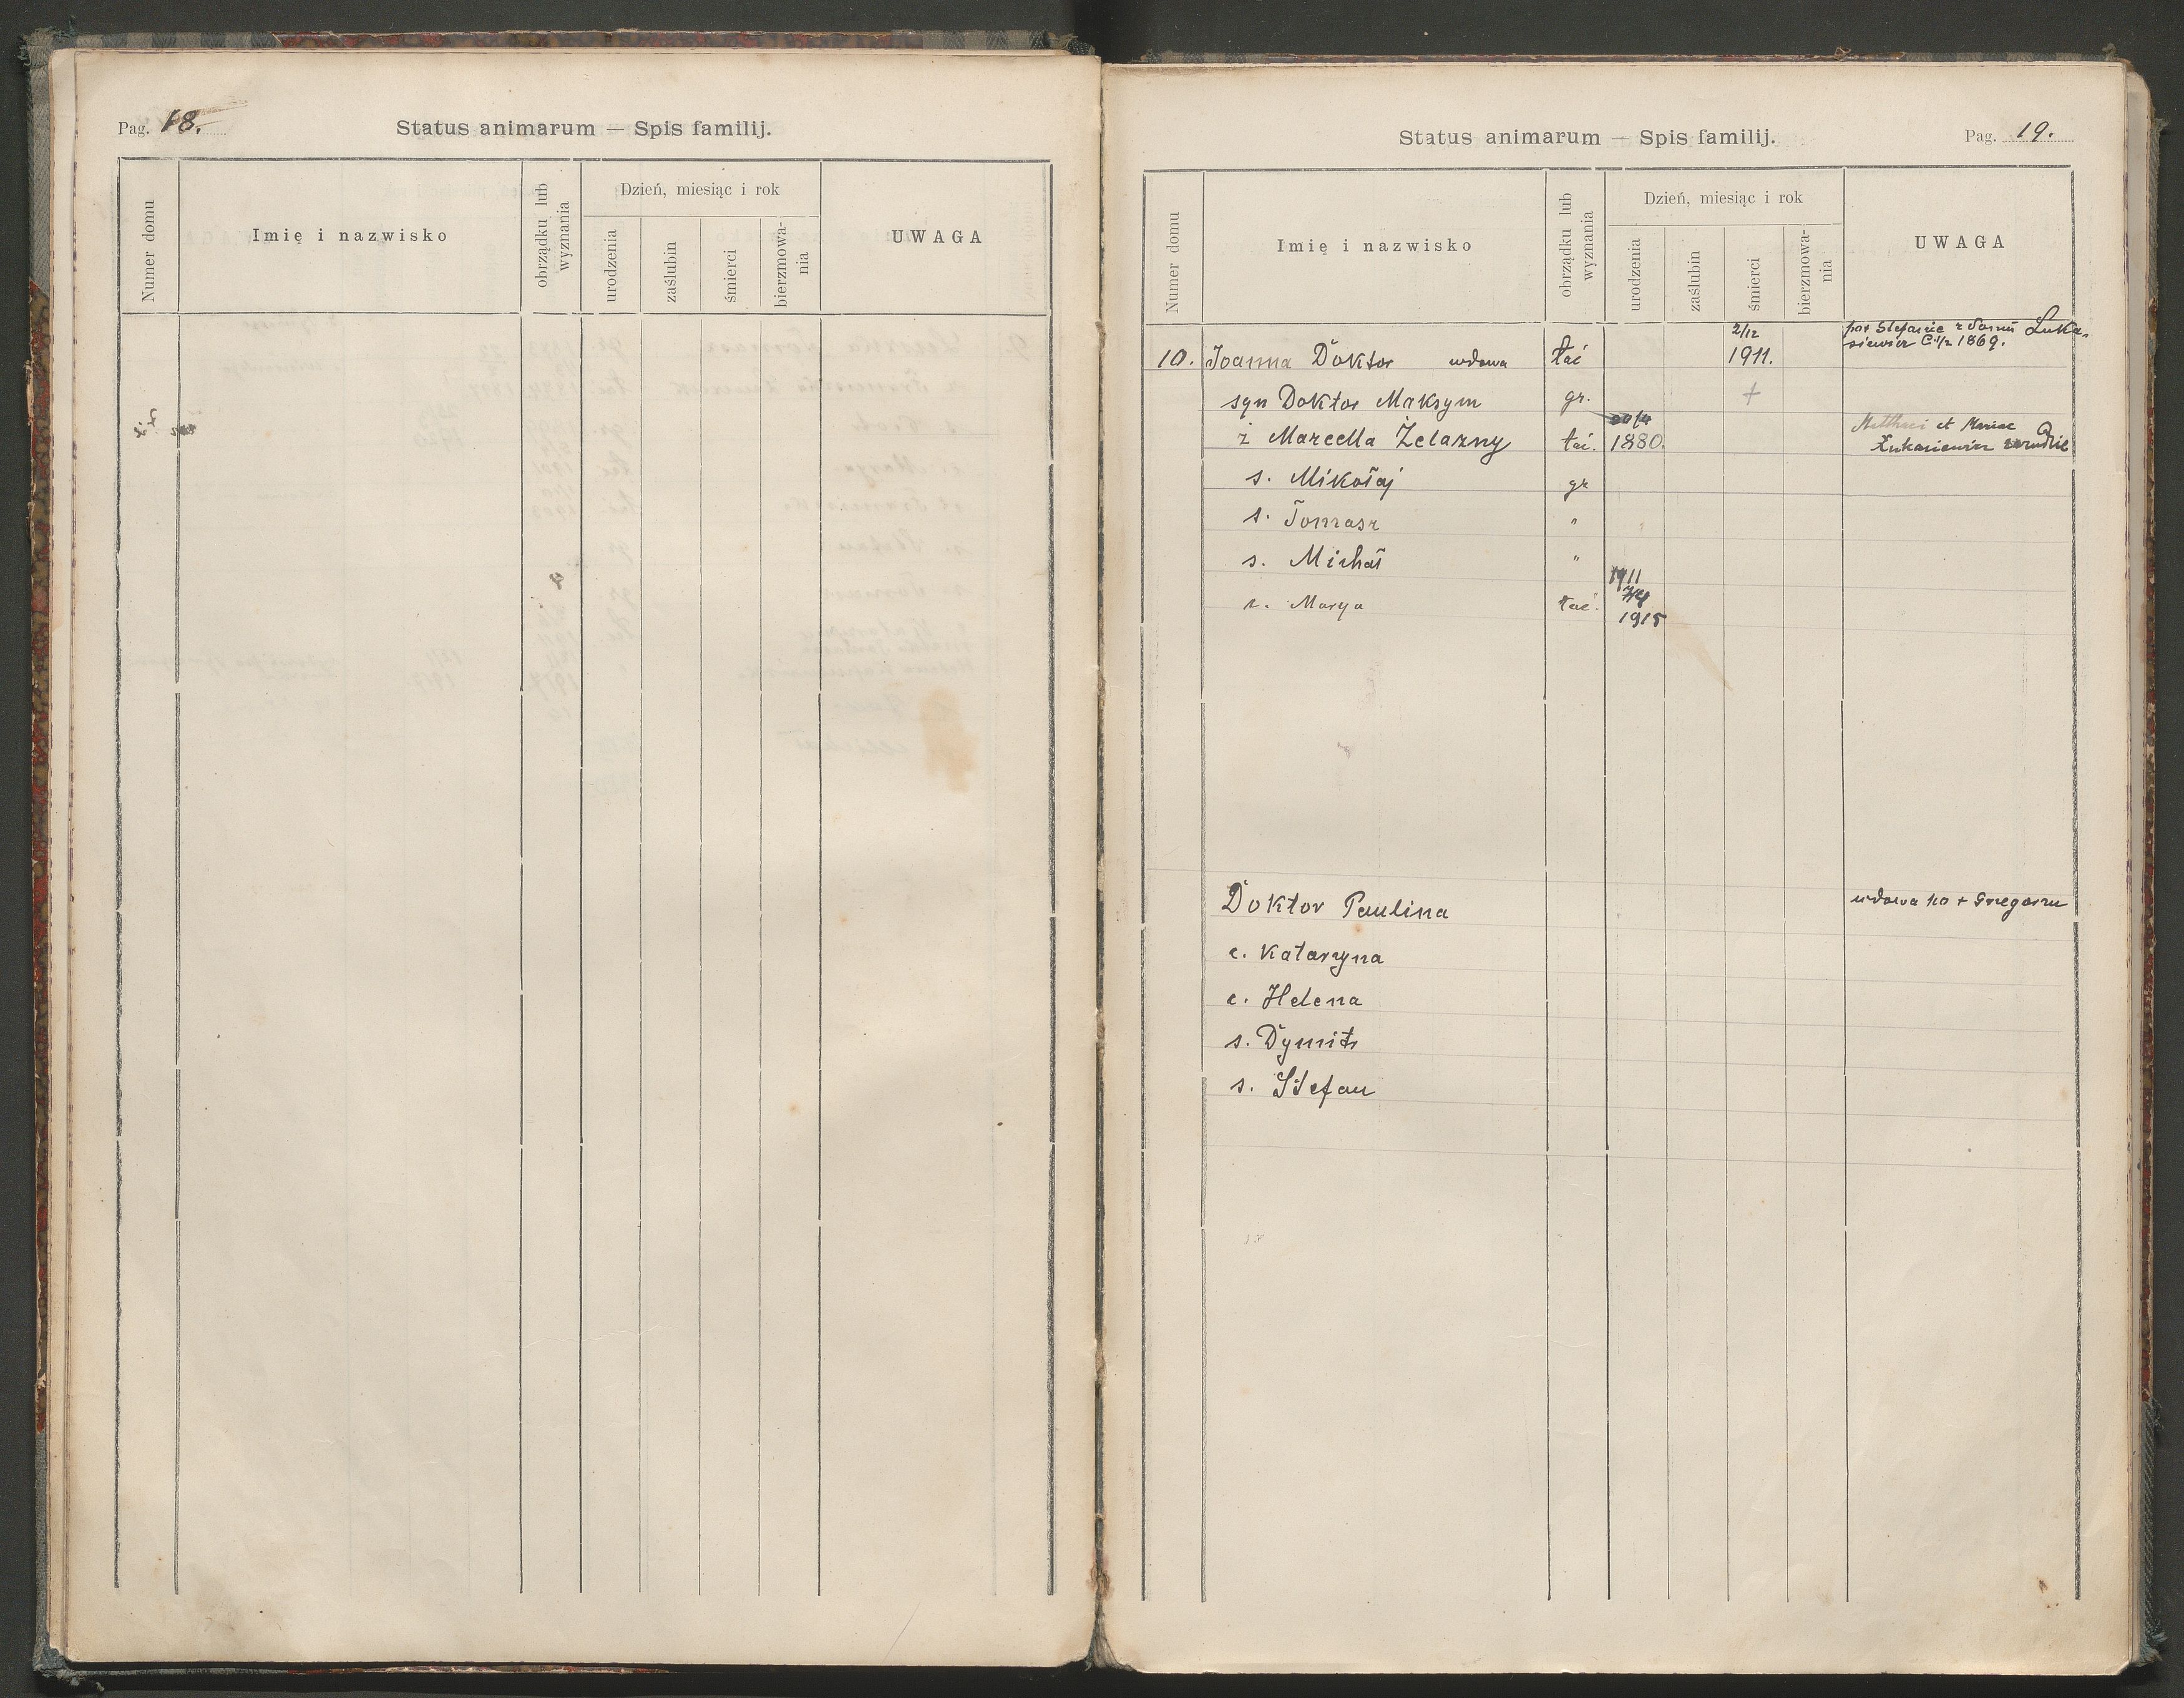 Pag. 18.
Status animarum — Spis familij.
Numer domu
Imię i nazwisko
obrządku lub wyznania
Dzień, miesiąc i rok
urodzenia
zaślubin
śmierci
bierzmowa-
nia
UWAGA
Status animarum — Spis familij.
Pag. 19.
Numer domu
Imię i nazwisko
obrządku lub wyznania
Dzień, miesiąc i rok
urodzenia
zaślubin
śmierci
bierzmowa-
nia
UWAGA
2/12
Stefanie z domu Łuka-
siewicz 1869.
10. Joanna Doktor wdowa łać 1911.
syn Doktor Maksym gr. +
ż Marcella Żelazny łać. 1880. et Mariae
Łukasiewicz
s. Mikołaj gr
s. Tomasz "
s. Michał "
1911
c. Marya łać.
1915
Doktor Paulina wdowa po + Grzegorzu
c. Katarzyna
c. Helena
s. Dymitr
s. Stefan